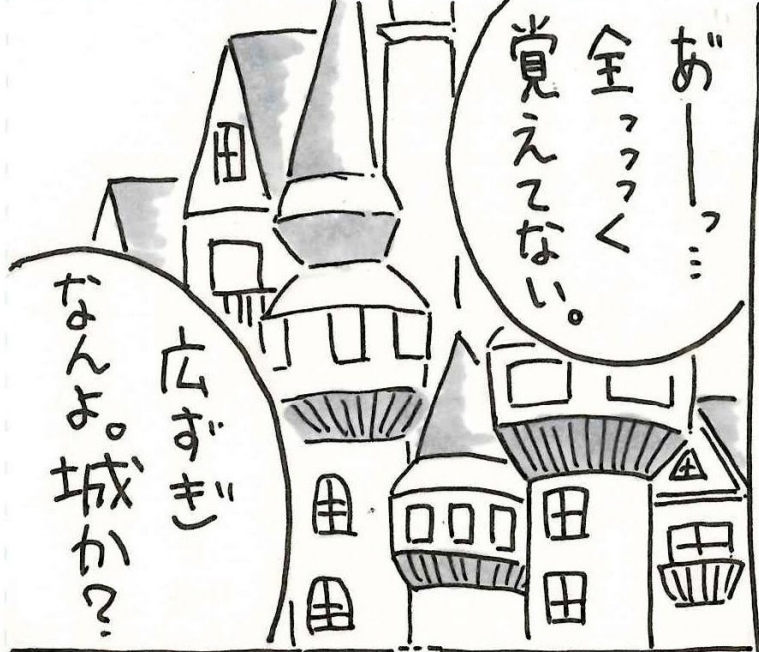 あ゛ーっ…
全っっっく
覚えてない。
広ずぎ
なんよ。城か？